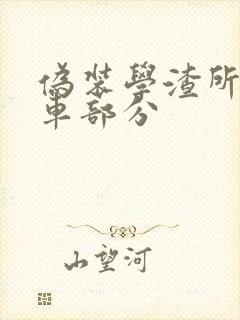 偽裝學渣所
車部分
山望河